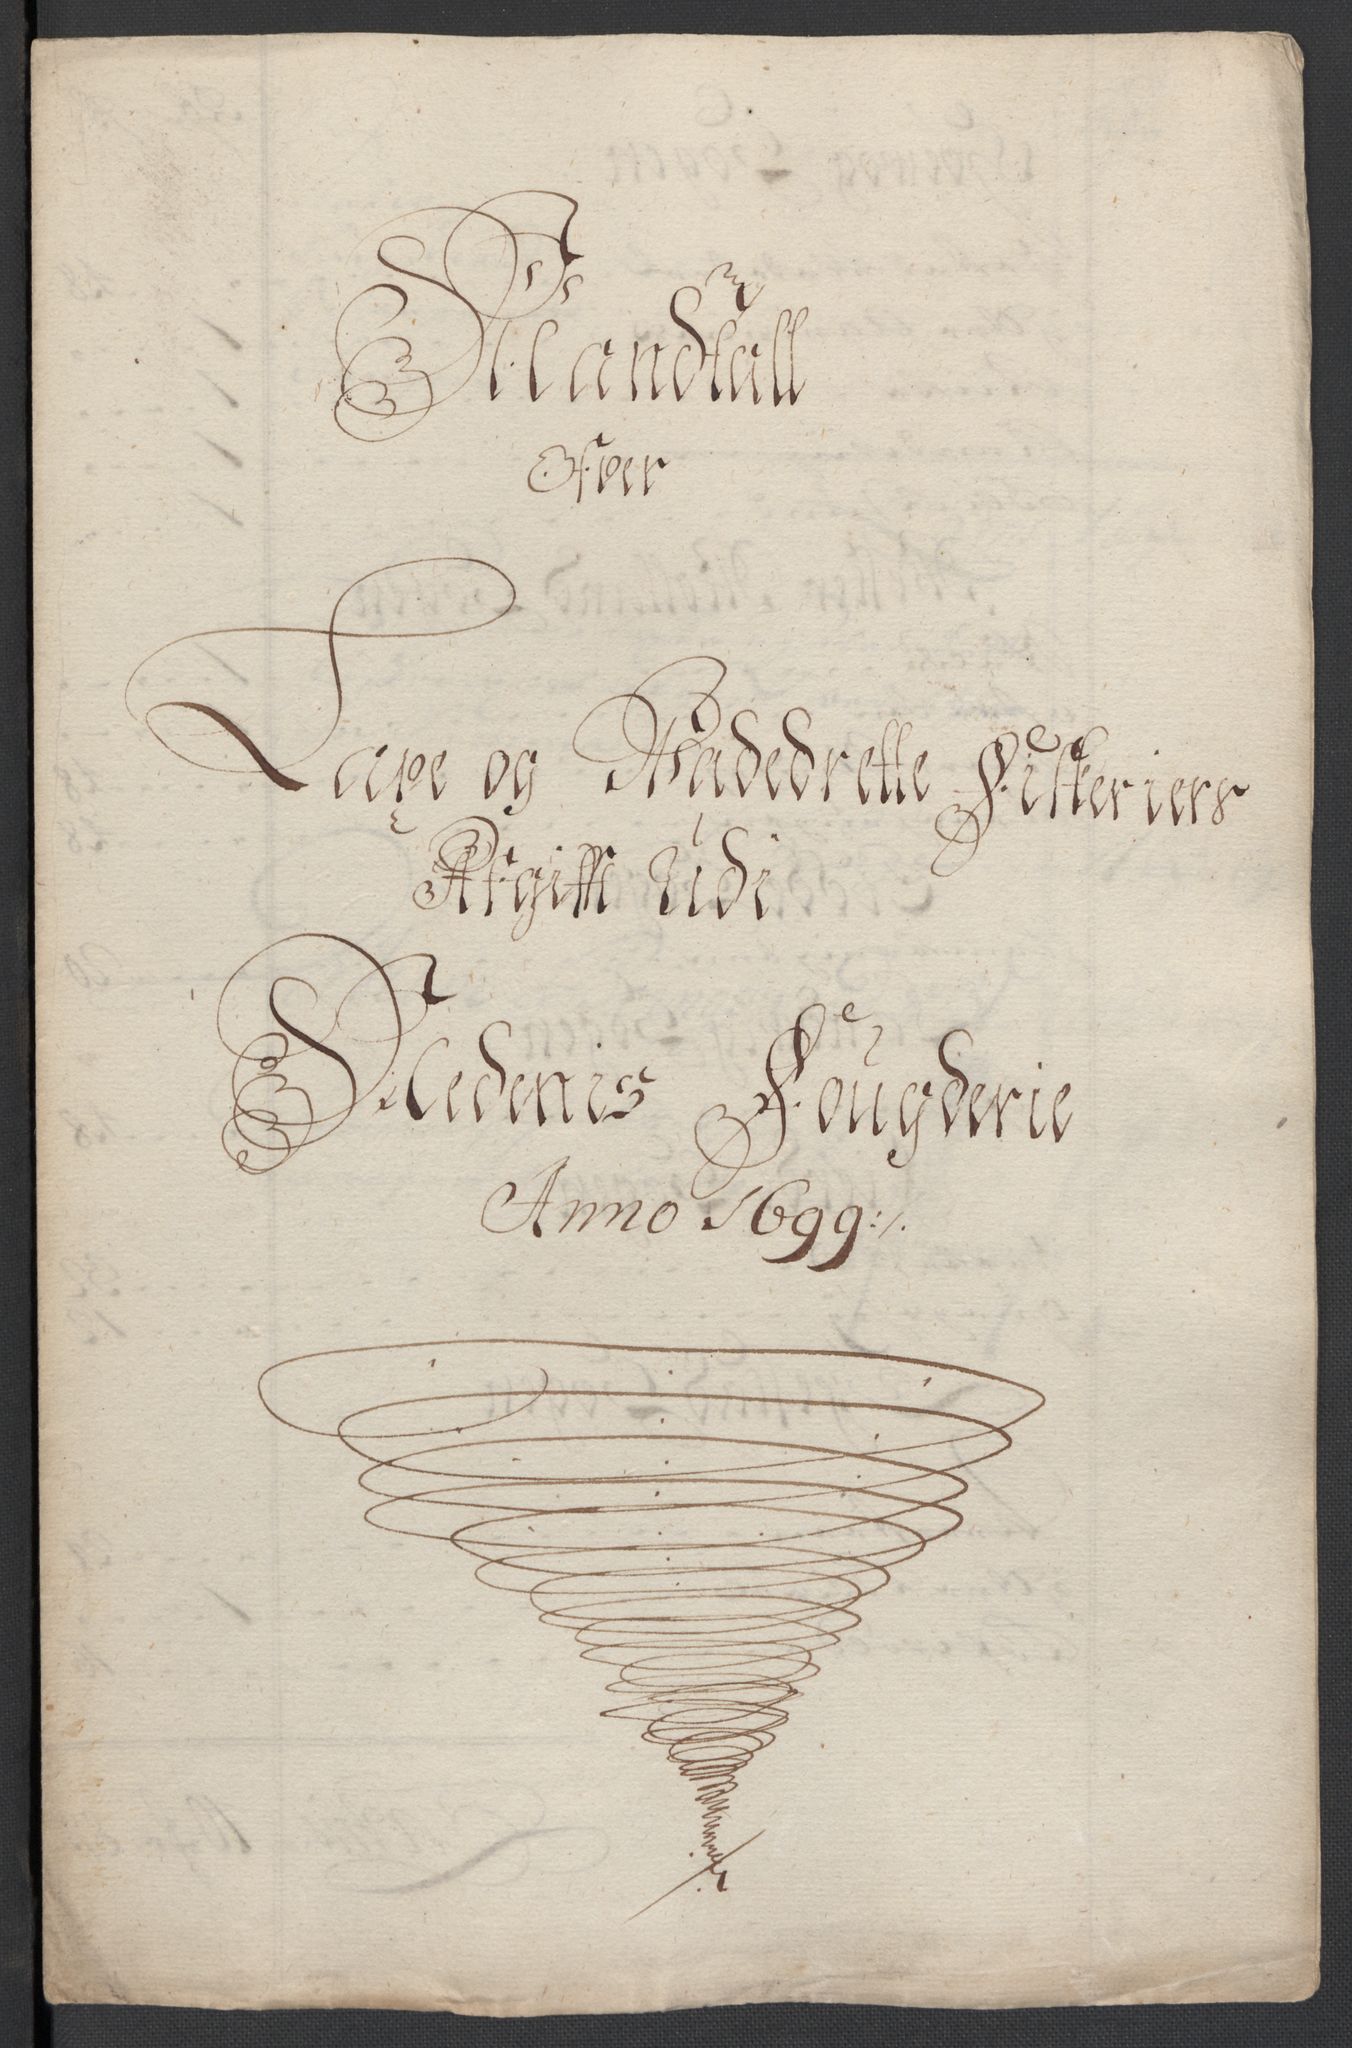 Mandtall
Ofver
Laxe og Wadedrette Fiskeriers
Afgifft udi
Nedenes Fougderie
Anno 1699:/.